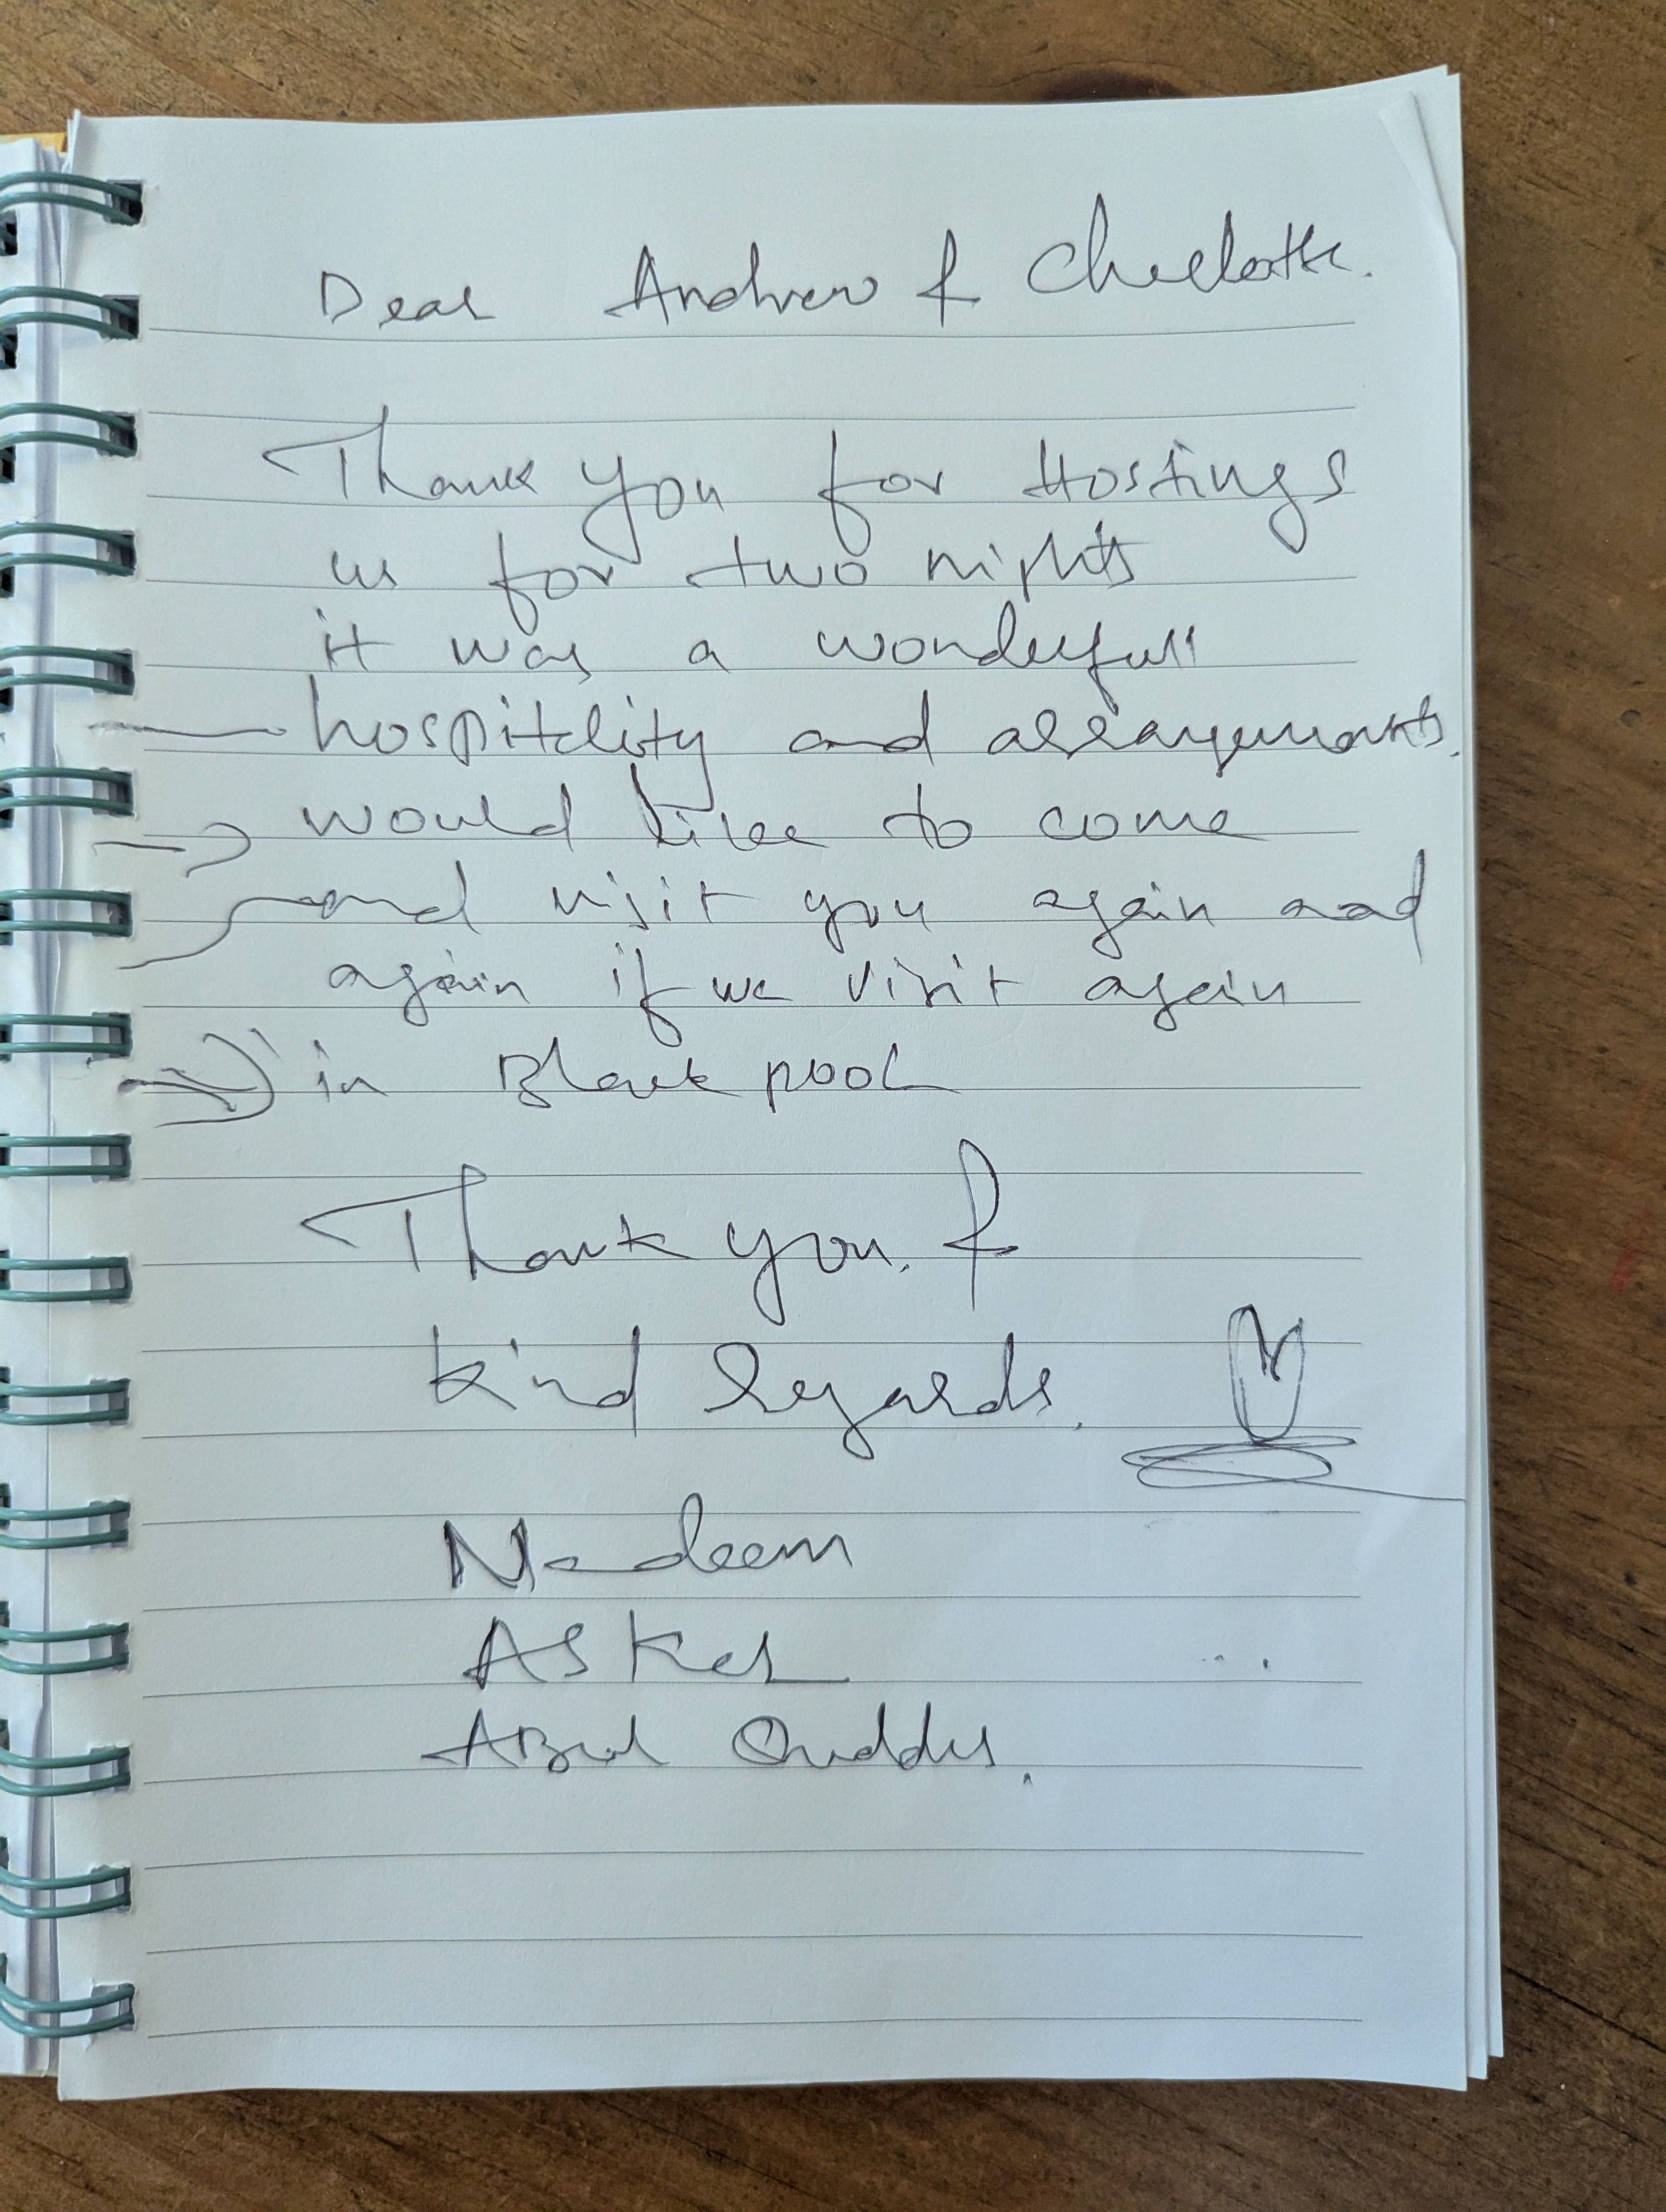 Dear Andrew & Charlotte.
Thank you for Hostings
us for two nights
it was a wonderfull
hospitality and arrangements.
would like to come
and visit you again and
again if we visit again
in Black pool
Thank you. &
Kind Regards.
Nadeem
Asker
Abul Quddus.